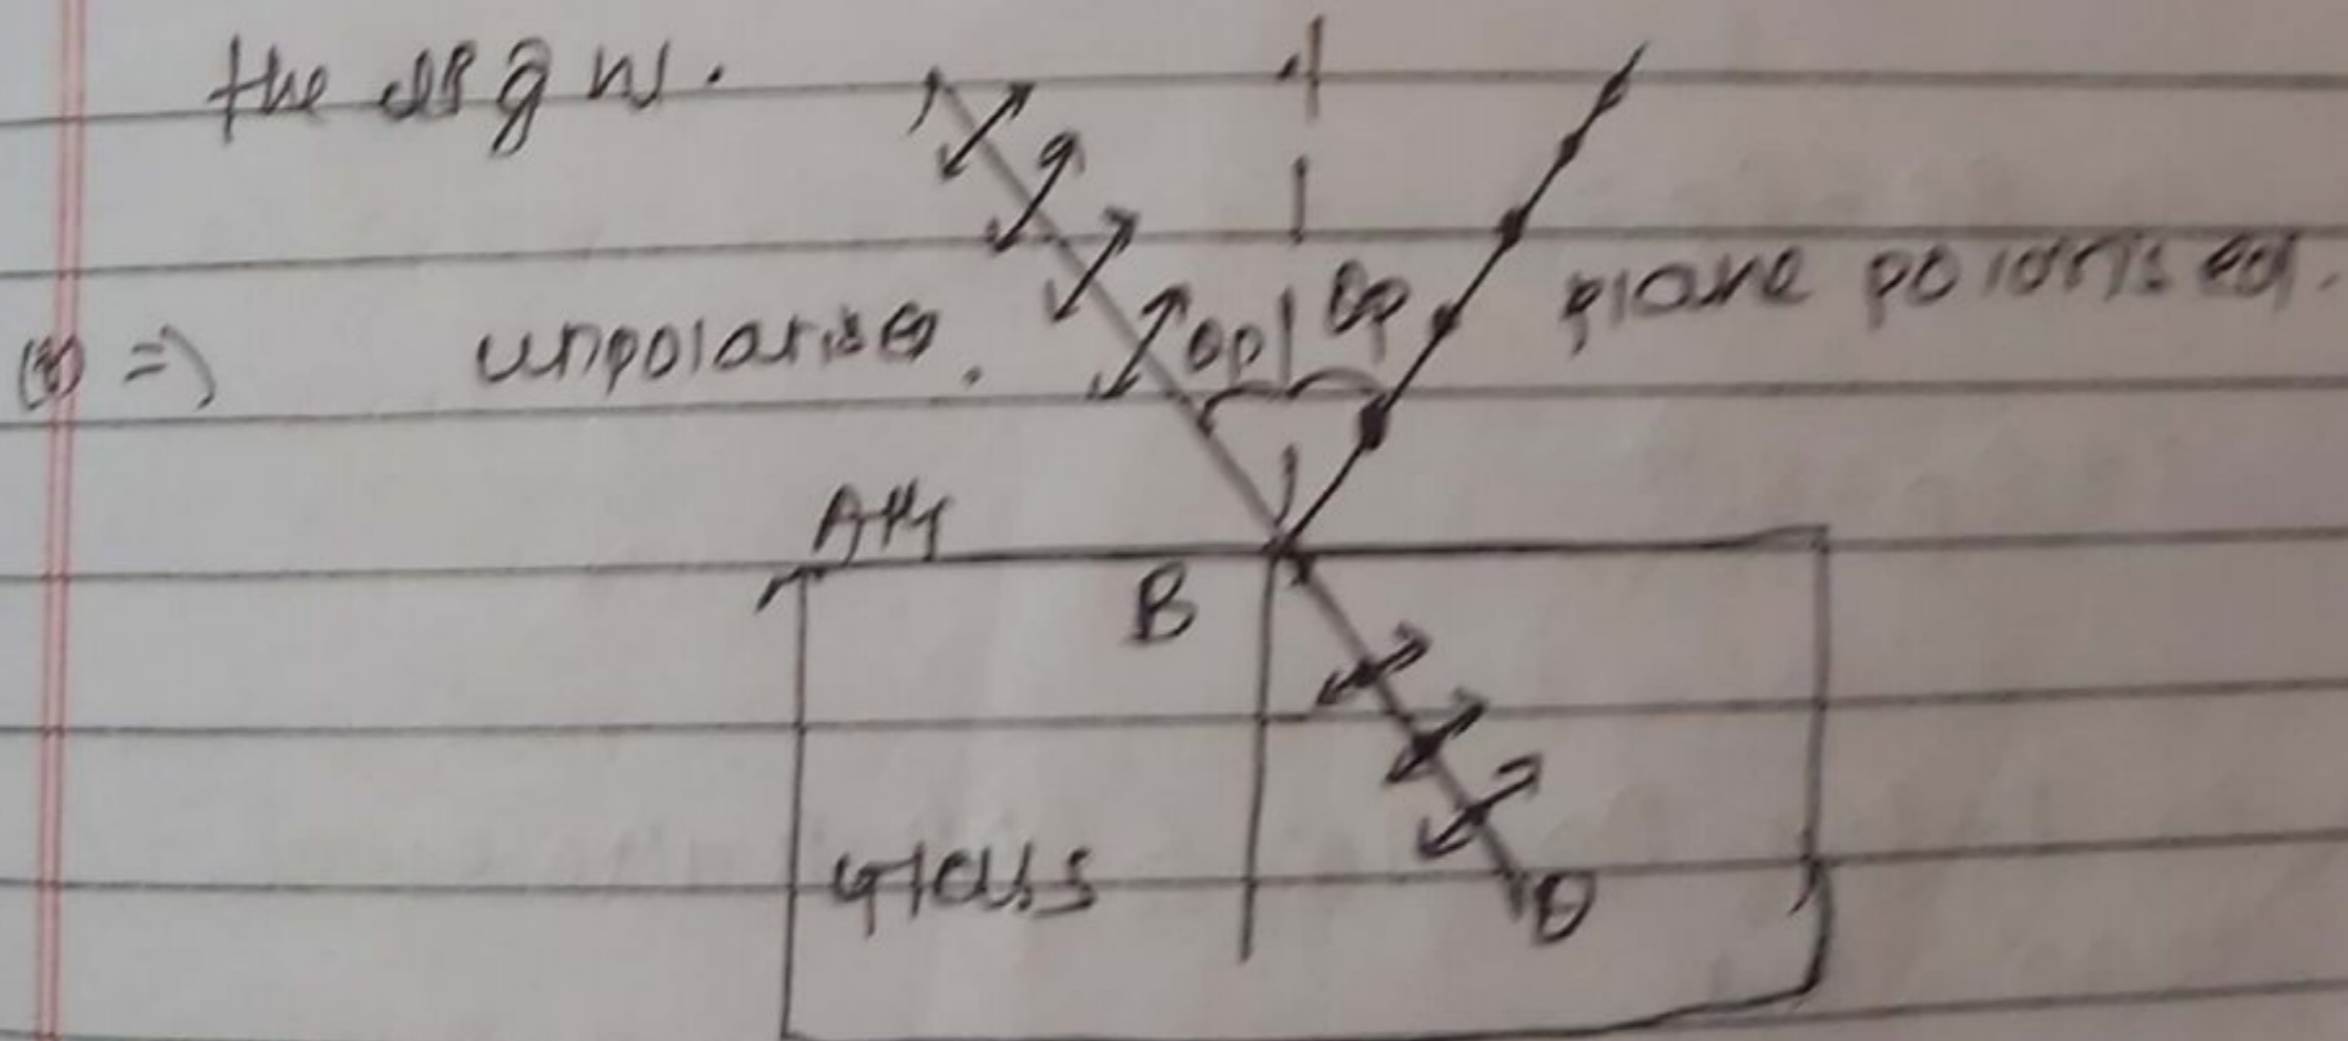 the
unpolarised.
θp θp
plane polarised.
B
Glass